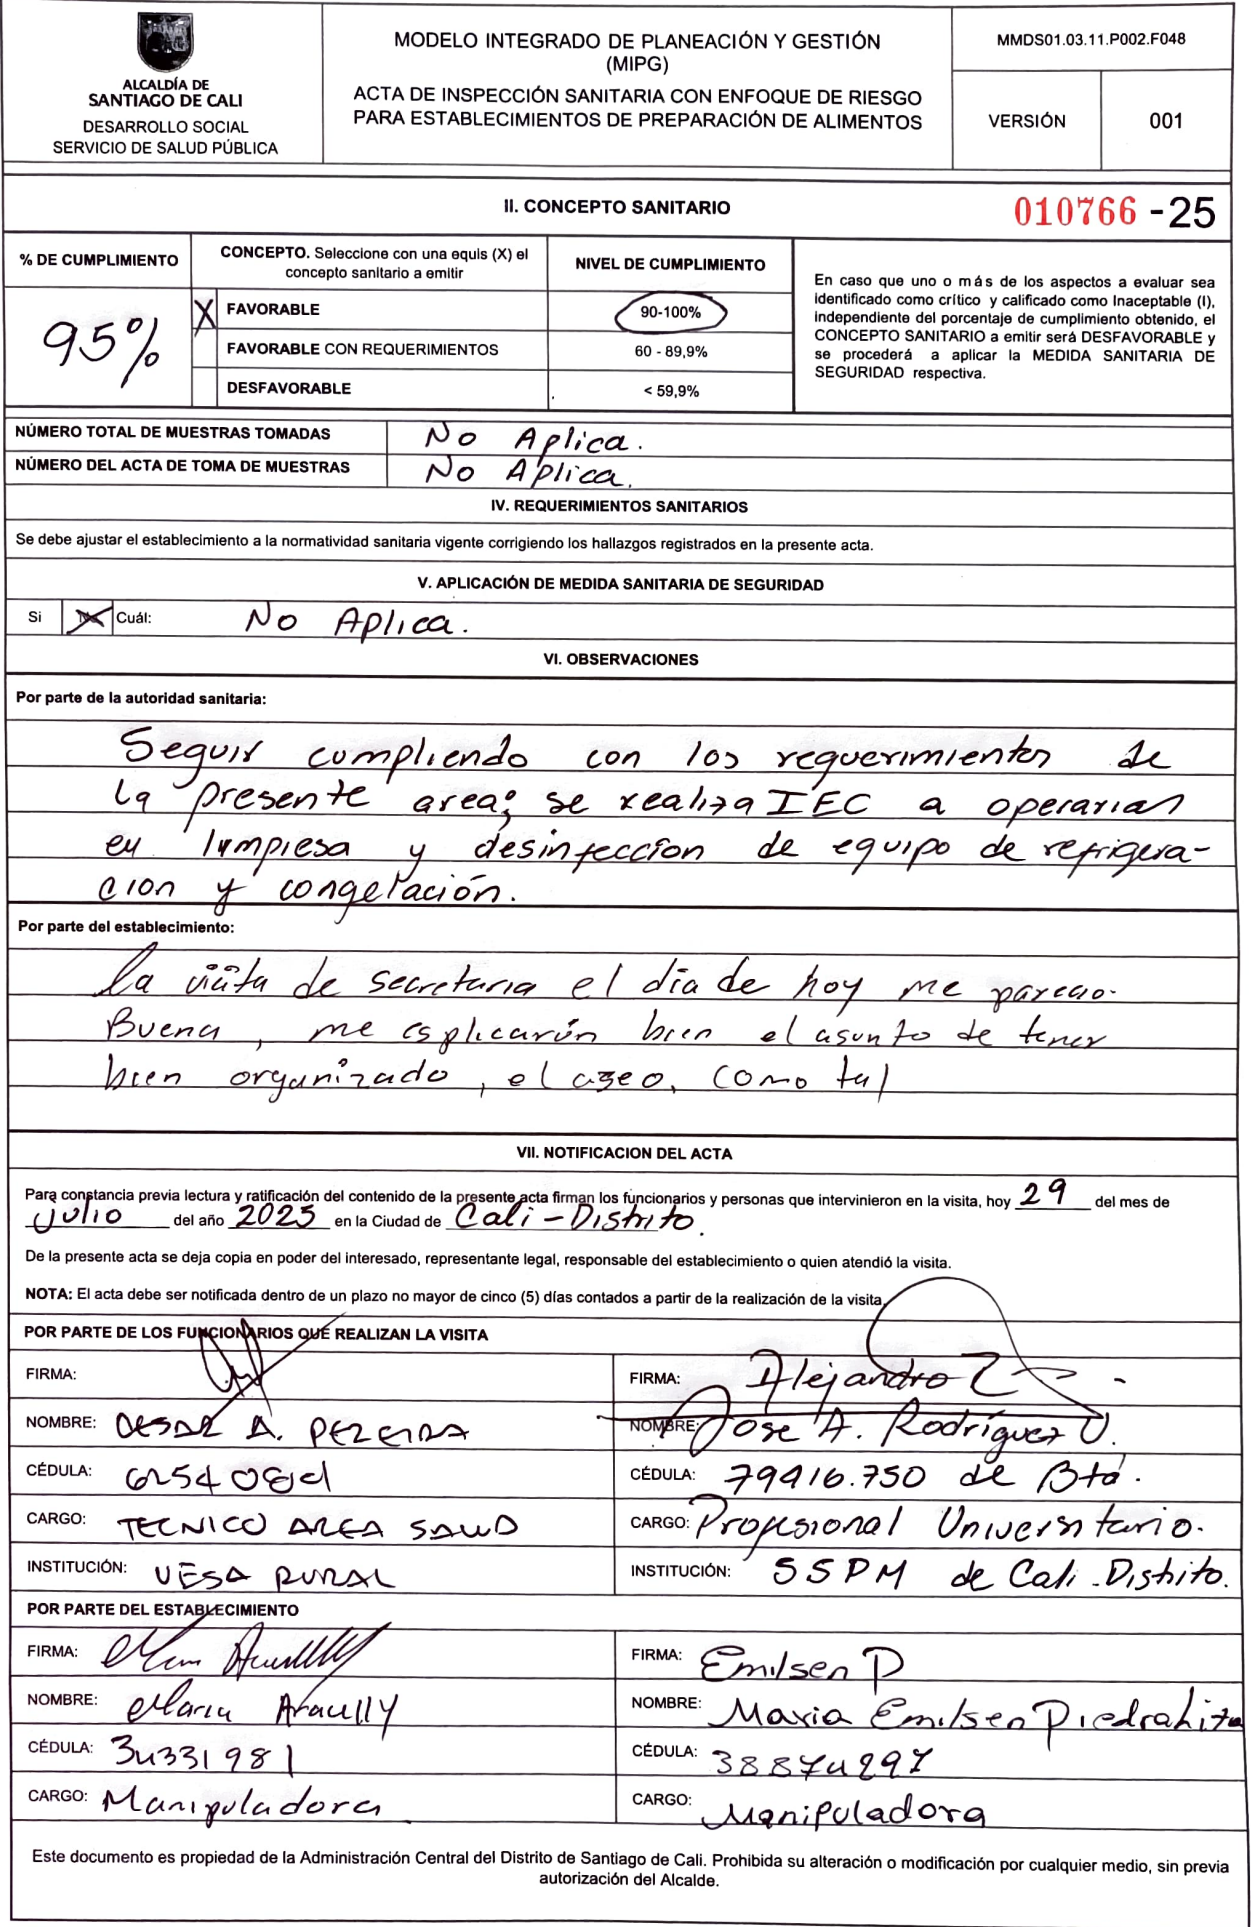 ALCALDÍA DE
SANTIAGO DE CALI
DESARROLLO SOCIAL
SERVICIO DE SALUD PÚBLICA
MODELO INTEGRADO DE PLANEACIÓN Y GESTIÓN
(MIPG)
ACTA DE INSPECCIÓN SANITARIA CON ENFOQUE DE RIESGO
PARA ESTABLECIMIENTOS DE PREPARACIÓN DE ALIMENTOS
MMDS01.03.11.P002.F048
VERSIÓN 001
II. CONCEPTO SANITARIO 010766 - 25
% DE CUMPLIMIENTO
95%
CONCEPTO. Seleccione con una equis (X) el
concepto sanitario a emitir
NIVEL DE CUMPLIMIENTO
X FAVORABLE 90-100%
FAVORABLE CON REQUERIMIENTOS 60 - 89,9%
DESFAVORABLE < 59,9%
En caso que uno o más de los aspectos a evaluar sea
identificado como crítico y calificado como Inaceptable (I),
independiente del porcentaje de cumplimiento obtenido, el
CONCEPTO SANITARIO a emitir será DESFAVORABLE y
se procederá a aplicar la MEDIDA SANITARIA DE
SEGURIDAD respectiva.
NÚMERO TOTAL DE MUESTRAS TOMADAS No Aplica.
NÚMERO DEL ACTA DE TOMA DE MUESTRAS No Aplica.
IV. REQUERIMIENTOS SANITARIOS
Se debe ajustar el establecimiento a la normatividad sanitaria vigente corrigiendo los hallazgos registrados en la presente acta.
V. APLICACIÓN DE MEDIDA SANITARIA DE SEGURIDAD
Si X Cuál: No Aplica.
VI. OBSERVACIONES
Por parte de la autoridad sanitaria:
Seguir cumpliendo con los requerimientos de
la presente area; se realiza IEC a operarias
en limpiesa y desinfeccion de equipo de refrigera-
cion y congelación.
Por parte del establecimiento:
la visita de secretaria el dia de hoy me parecio
Buena, me esplicarón bien el asunto de tener
bien organizado, el aseo, como tal
VII. NOTIFICACION DEL ACTA
Para constancia previa lectura y ratificación del contenido de la presente acta firman los funcionarios y personas que intervinieron en la visita, hoy 29 del mes de
Julio del año 2025 en la Ciudad de Cali - Distrito.
De la presente acta se deja copia en poder del interesado, representante legal, responsable del establecimiento o quien atendió la visita.
NOTA: El acta debe ser notificada dentro de un plazo no mayor de cinco (5) días contados a partir de la realización de la visita.
POR PARTE DE LOS FUNCIONARIOS QUE REALIZAN LA VISITA
FIRMA:
FIRMA: Alejandro
NOMBRE: CESAR A. PEREIRA
NOMBRE: Jose A. Rodríguez V.
CÉDULA:
CÉDULA: 79416.750 de Bta.
CARGO: TECNICO AREA SALUD
CARGO: Profesional Universitario.
INSTITUCIÓN: UESA RURAL
INSTITUCIÓN: SSPM de Cali - Distrito.
POR PARTE DEL ESTABLECIMIENTO
FIRMA:
FIRMA: Emilsen P
NOMBRE: Maria Aracelly
NOMBRE: Maria Emilsen Piedrahita
CÉDULA: 34331981
CÉDULA: 38874297
CARGO: Manipuladora
CARGO: Manipuladora
Este documento es propiedad de la Administración Central del Distrito de Santiago de Cali. Prohibida su alteración o modificación por cualquier medio, sin previa
autorización del Alcalde.